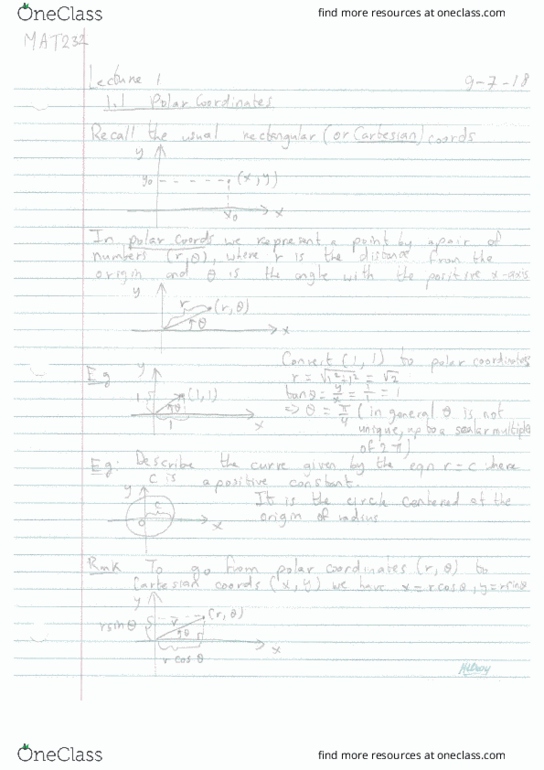 OneClass
find more resources at oneclass.com
MAT232
Lecture 1
9-7-18
1.1 Polar Coordinates
Recall the usual rectangular (or Cartesian) coords
y
y0
(x, y)
x0
x
In polar coords we represent a point by a pair of
numbers (r, θ), where r is the distance from the
origin and θ is the angle with the positive x-axis
y
r
(r, θ)
θ
x
Eg
y
1
(1, 1)
θ
1
x
Convert (1, 1) to polar coordinates
r = √1²+1² = √2
tanθ = y/x = 1/1 = 1
⇒ θ = π/4 (in general θ is not
unique, up to a scalar multiple
of 2π)
Eg: Describe the curve given by the eqn r = c where
c is a positive constant.
y
c
0
x
It is the circle centered at the
origin of radius
Rmk To go from polar coordinates (r, θ) to
Cartesian coords (x, y) we have x = r cosθ, y = r sinθ
y
r sin θ
r
(r, θ)
θ
r cos θ
x
OneClass
find more resources at oneclass.com